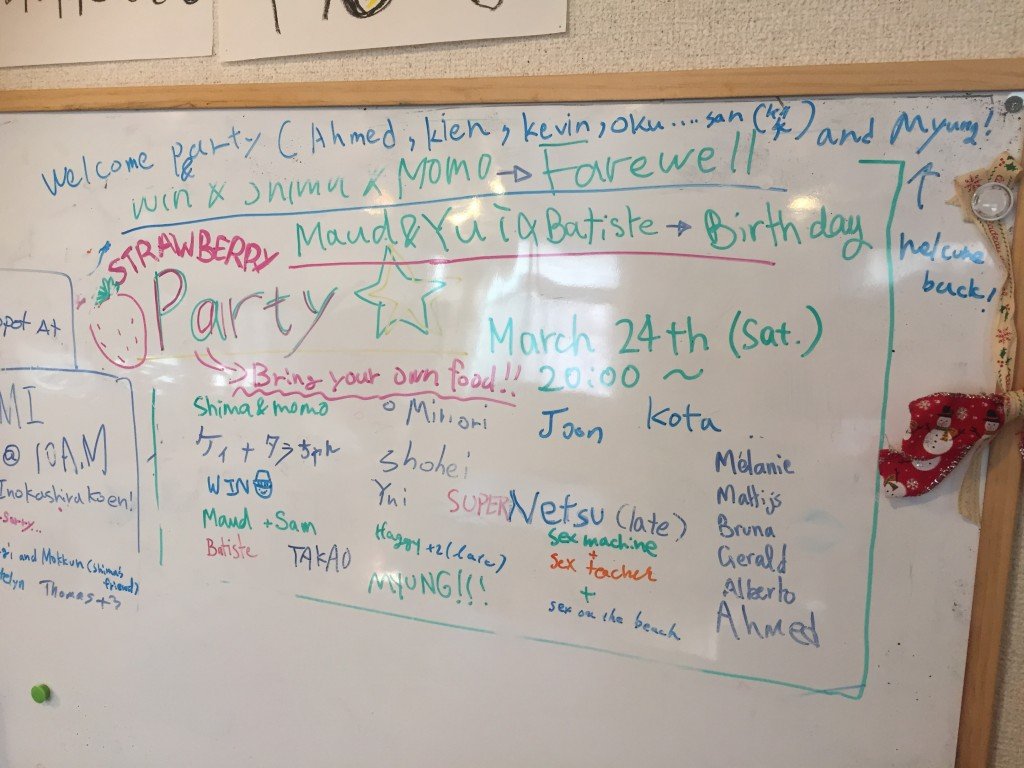 welcome party (Ahmed, kien, kevin, oku....san ( ) and Myung!
&
win & Shima & MOMO → Farewell
Maud & Yui & Batiste → Birthday
welcome
back!
STRAWBERRY
Party
March 24th (Sat.)
20:00 ~
Bring your own food!!
Shima & momo
ケイ + タラちゃん
WIN
Maud + Sam
Batiste
TAKAO
Midori
Shohei
Yui
Haggy +2 (late)
MYUNG!!!
Joon
Kota
SUPER Netsu (late)
sex machine
+
sex teacher
+
sex on the beach
Mélanie
Mattijs
Bruna
Gerald
Alberto
Ahmed
pot At
MI
@ 10A.M
Inokashira koen!
gi and Mokkun (shima's
friend)
Thomas +3